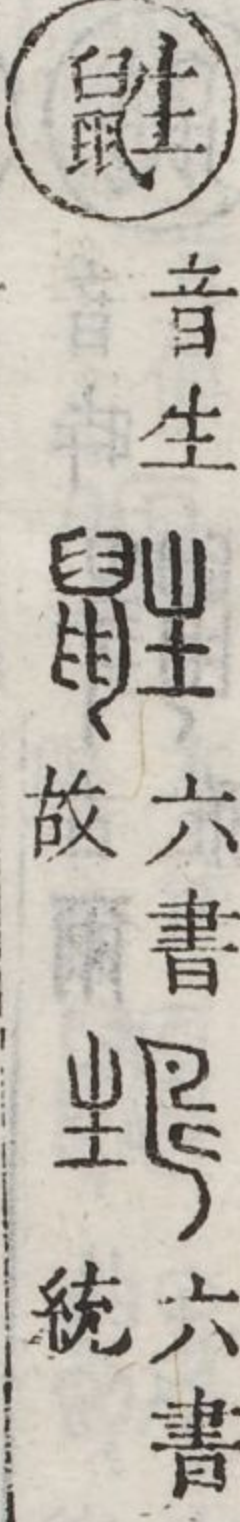 鼪
音生
六書故
六書統